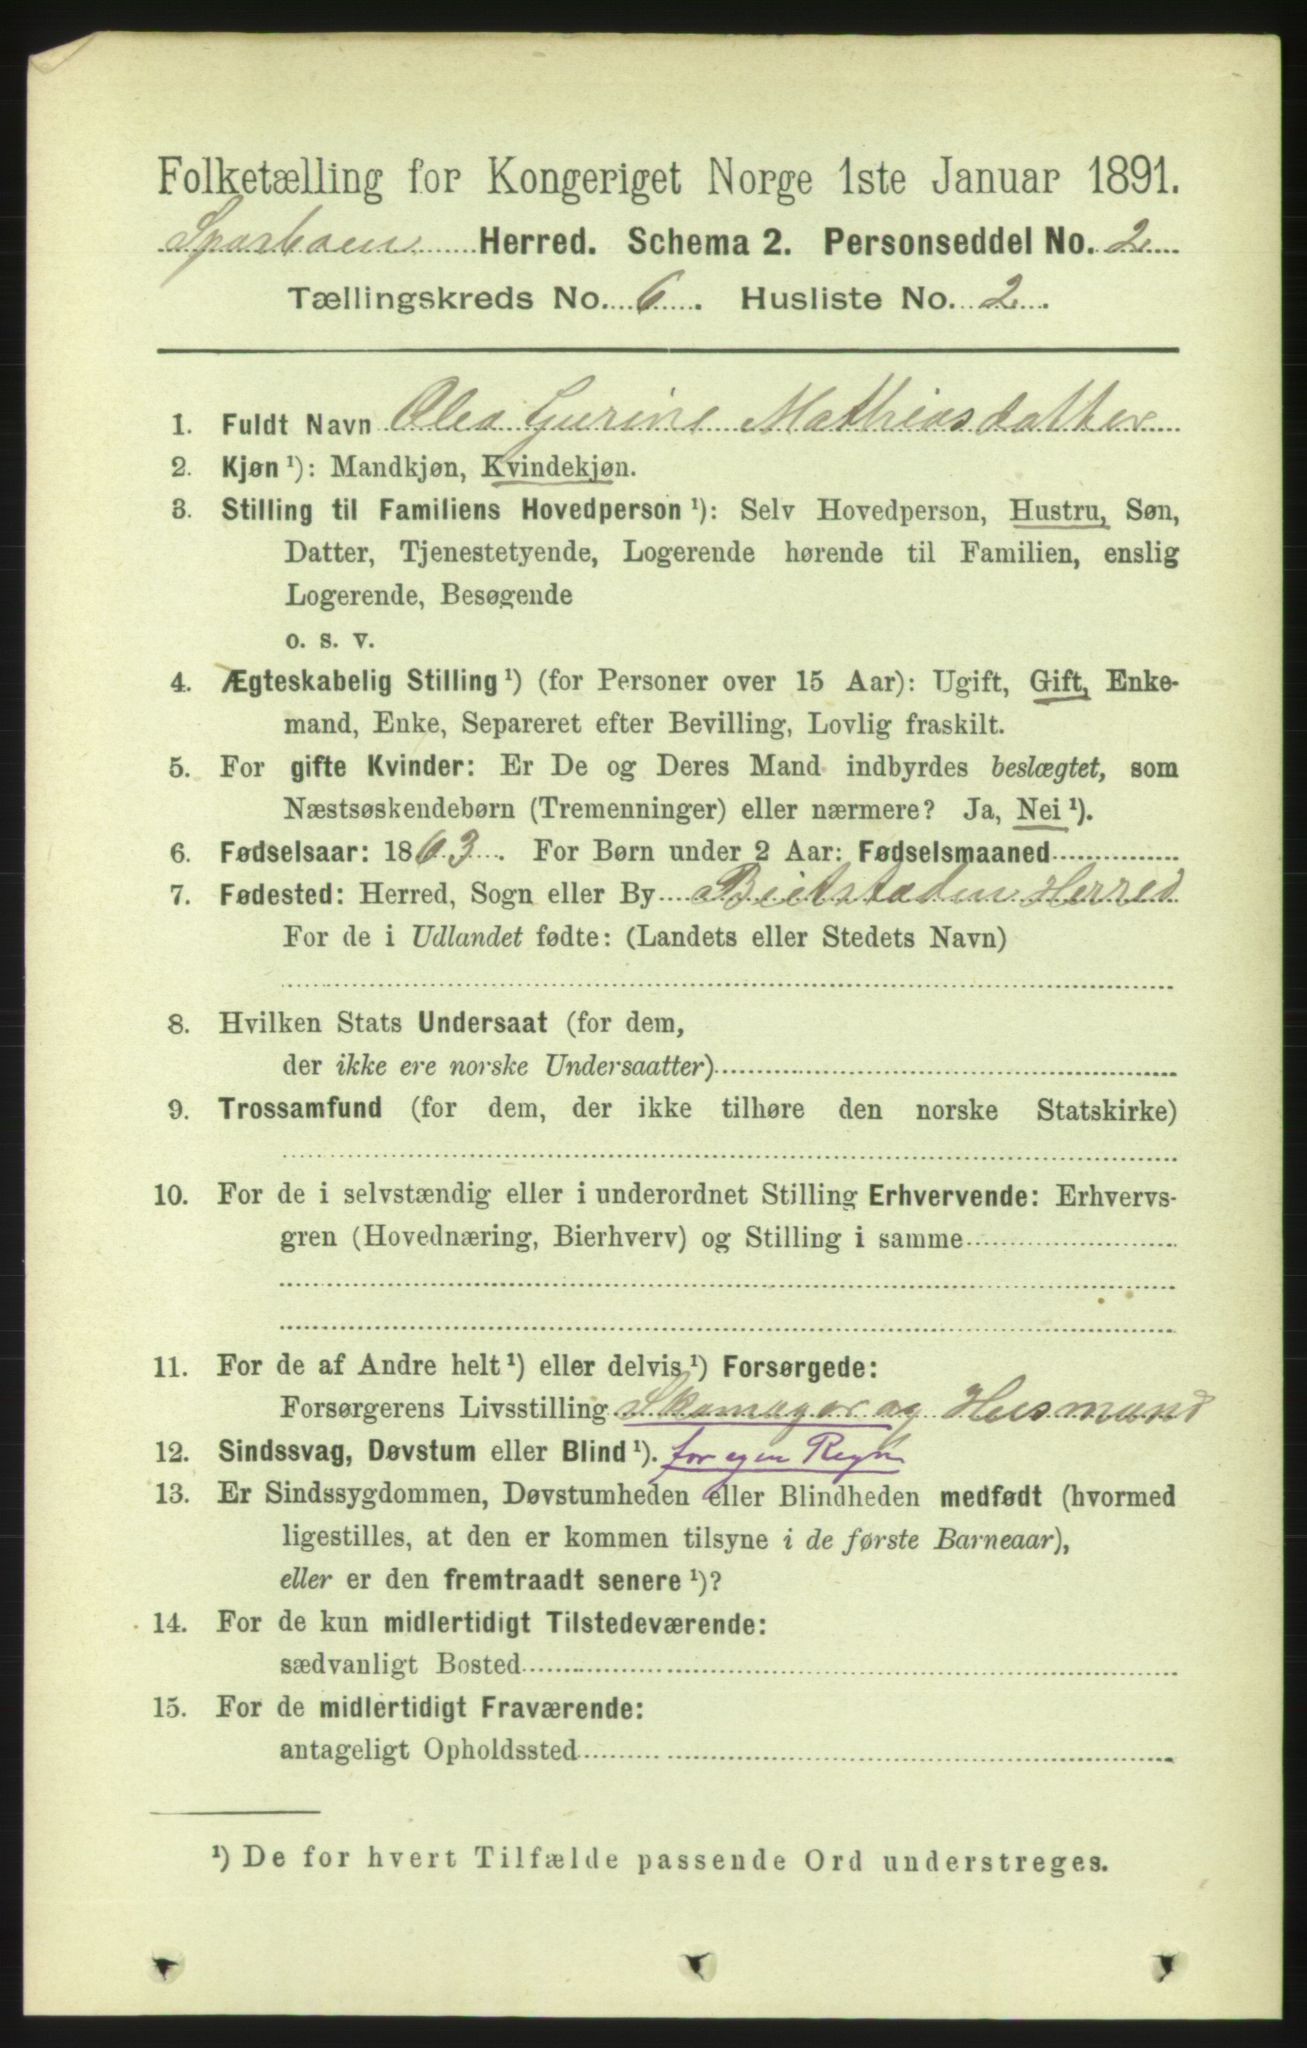 Folketælling for Kongeriget Norge 1ste Januar 1891.
Sparbuen Herred. Schema 2. Personseddel No. 2
Tællingskreds No. 6. Husliste No. 2.
1. Fuldt Navn Olea Gurine Mathiasdatter
2. Kjøn ¹): Mandkjøn, Kvindekjøn.
3. Stilling til Familiens Hovedperson ¹): Selv Hovedperson, Hustru, Søn,
Datter, Tjenestetyende, Logerende hørende til Familien, enslig
Logerende, Besøgende
o. s. v.
4. Ægteskabelig Stilling ¹) (for Personer over 15 Aar): Ugift, Gift, Enke-
mand, Enke, Separeret efter Bevilling, Lovlig fraskilt.
5. For gifte Kvinder: Er De og Deres Mand indbyrdes beslægtet, som
Næstsøskendebørn (Tremenninger) eller nærmere? Ja, Nei ¹).
6. Fødselsaar: 1863. For Børn under 2 Aar: Fødselsmaaned
7. Fødested: Herred, Sogn eller By Beitstaden Herred
For de i Udlandet fødte: (Landets eller Stedets Navn)
8. Hvilken Stats Undersaat (for dem,
der ikke ere norske Undersaatter)
9. Trossamfund (for dem, der ikke tilhøre den norske Statskirke)
10. For de i selvstændig eller i underordnet Stilling Erhvervende: Erhvervs-
gren (Hovednæring, Bierhverv) og Stilling i samme
11. For de af Andre helt ¹) eller delvis ¹) Forsørgede:
Forsørgerens Livsstilling Skomager og Husmand
12. Sindssvag, Døvstum eller Blind ¹). for egen Regn
13. Er Sindssygdommen, Døvstumheden eller Blindheden medfødt (hvormed
ligestilles, at den er kommen tilsyne i de første Barneaar),
eller er den fremtraadt senere ¹)?
14. For de kun midlertidigt Tilstedeværende:
sædvanligt Bosted
15. For de midlertidigt Fraværende:
antageligt Opholdssted
¹) De for hvert Tilfælde passende Ord understreges.